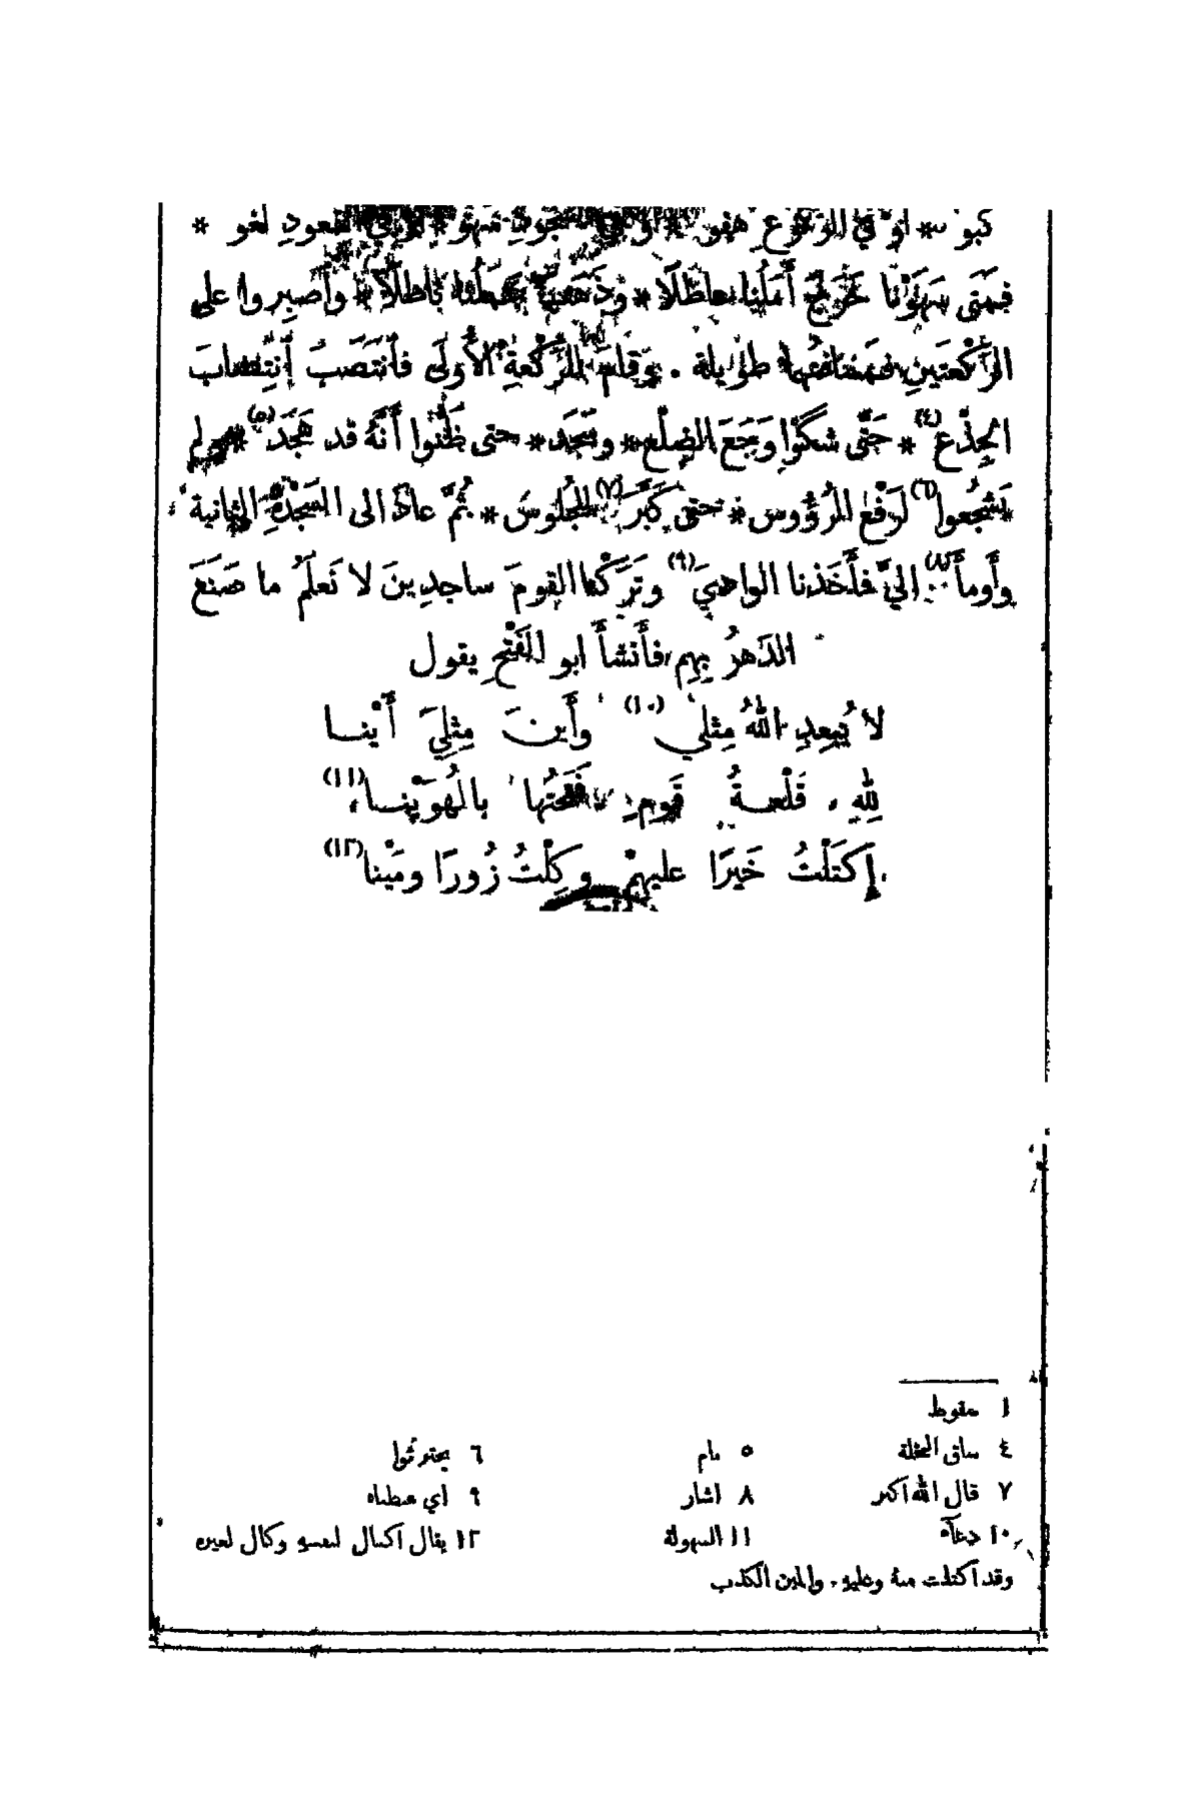 كبو * او في الركوع هفو * او في السجود سهو * او في القعود لغو *
فمتى سَهَوْنا خَرَجَ أَمَلُنا عاطلًا * وذَهَبَ عَمَلُنا باطلًا * وأصبروا على
الركعتين فمسافتُهما طويلة . وقامَ للرَّكْعةِ الأُولَى فأنتَصَبَ أنتِصابَ
الجِذْع (٤) * حَتَّى شكَوْا وَجَعَ الضِلْع * وسَجَدَ * حتى ظَنُّوا أَنَّهُ قد هَجَدَ (٥) * ولم
يَشجُعوا (٦) لرَفْع الرُؤُوس * حتى كَبَّرَ (٧) للجُلوس * ثُمَّ عادَ الى السَجْدةِ الثانية *
وأَومأَ (٨) اليَّ فأَخَذنا الوادِيَ (٩) وتَرَكْنا القومَ ساجدِينَ لا نَعلَمُ ما صَنَعَ
الدَهرُ بِهِم فأَنشأَ ابو الفَتْحِ يقول
لا يُبعِدِ اللهُ مِثلي (١٠) وأَينَ مِثلِيَ أَينا
لِلهِ قَلْعةُ قَومٍ فَتَحتُها بالهُوَينا (١١)
إِكتَلْتُ خَيرًا عليهِمْ وكِلْتُ زُورًا ومَيْنا (١٢)
١ سقوط
٤ ساق النخلة ٥ نام ٦ يجترئوا
٧ قال الله اكبر ٨ اشار ٩
١٠ ١١ السهولة ١٢ يقال اكتال لنفسه وكال لغيره
وقد اكتلت منهُ وعليهِ . والمين الكذب